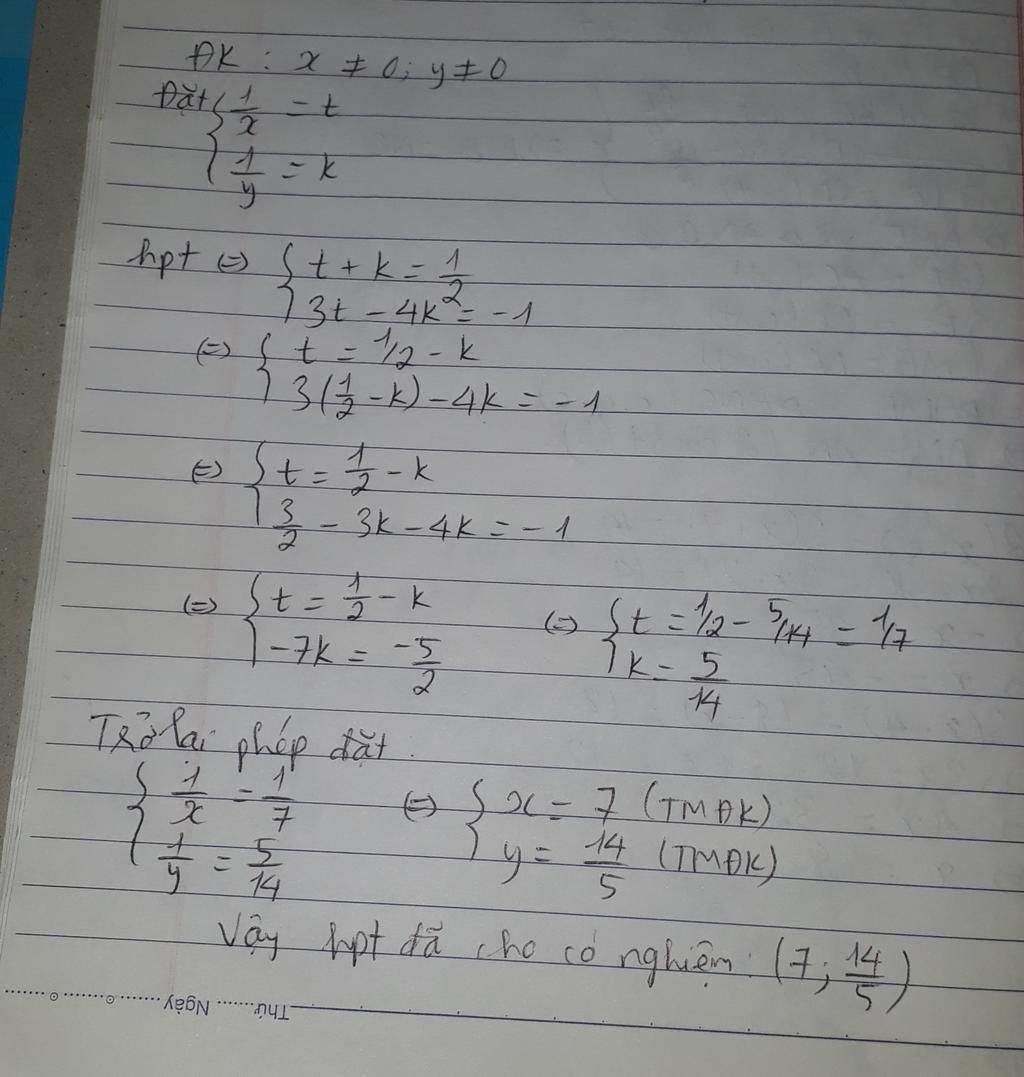 ĐK : x ≠ 0; y ≠ 0
Đặt { 1/x = t
1/y = k
hpt ⇔ { t + k = 1/2
3t - 4k = -1
⇔ { t = 1/2 - k
3(1/2 - k) - 4k = -1
⇔ { t = 1/2 - k
3/2 - 3k - 4k = -1
⇔ { t = 1/2 - k
-7k = -5/2
⇔ { t = 1/2 - 5/14 = 1/7
k = 5/14
Trở lại phép đặt.
{ 1/x = 1/7
1/y = 5/14
⇔ { x = 7 (TMĐK)
y = 14/5 (TMĐK)
Vậy hpt đã cho có nghiệm: (7; 14/5)
Thứ......... Ngày